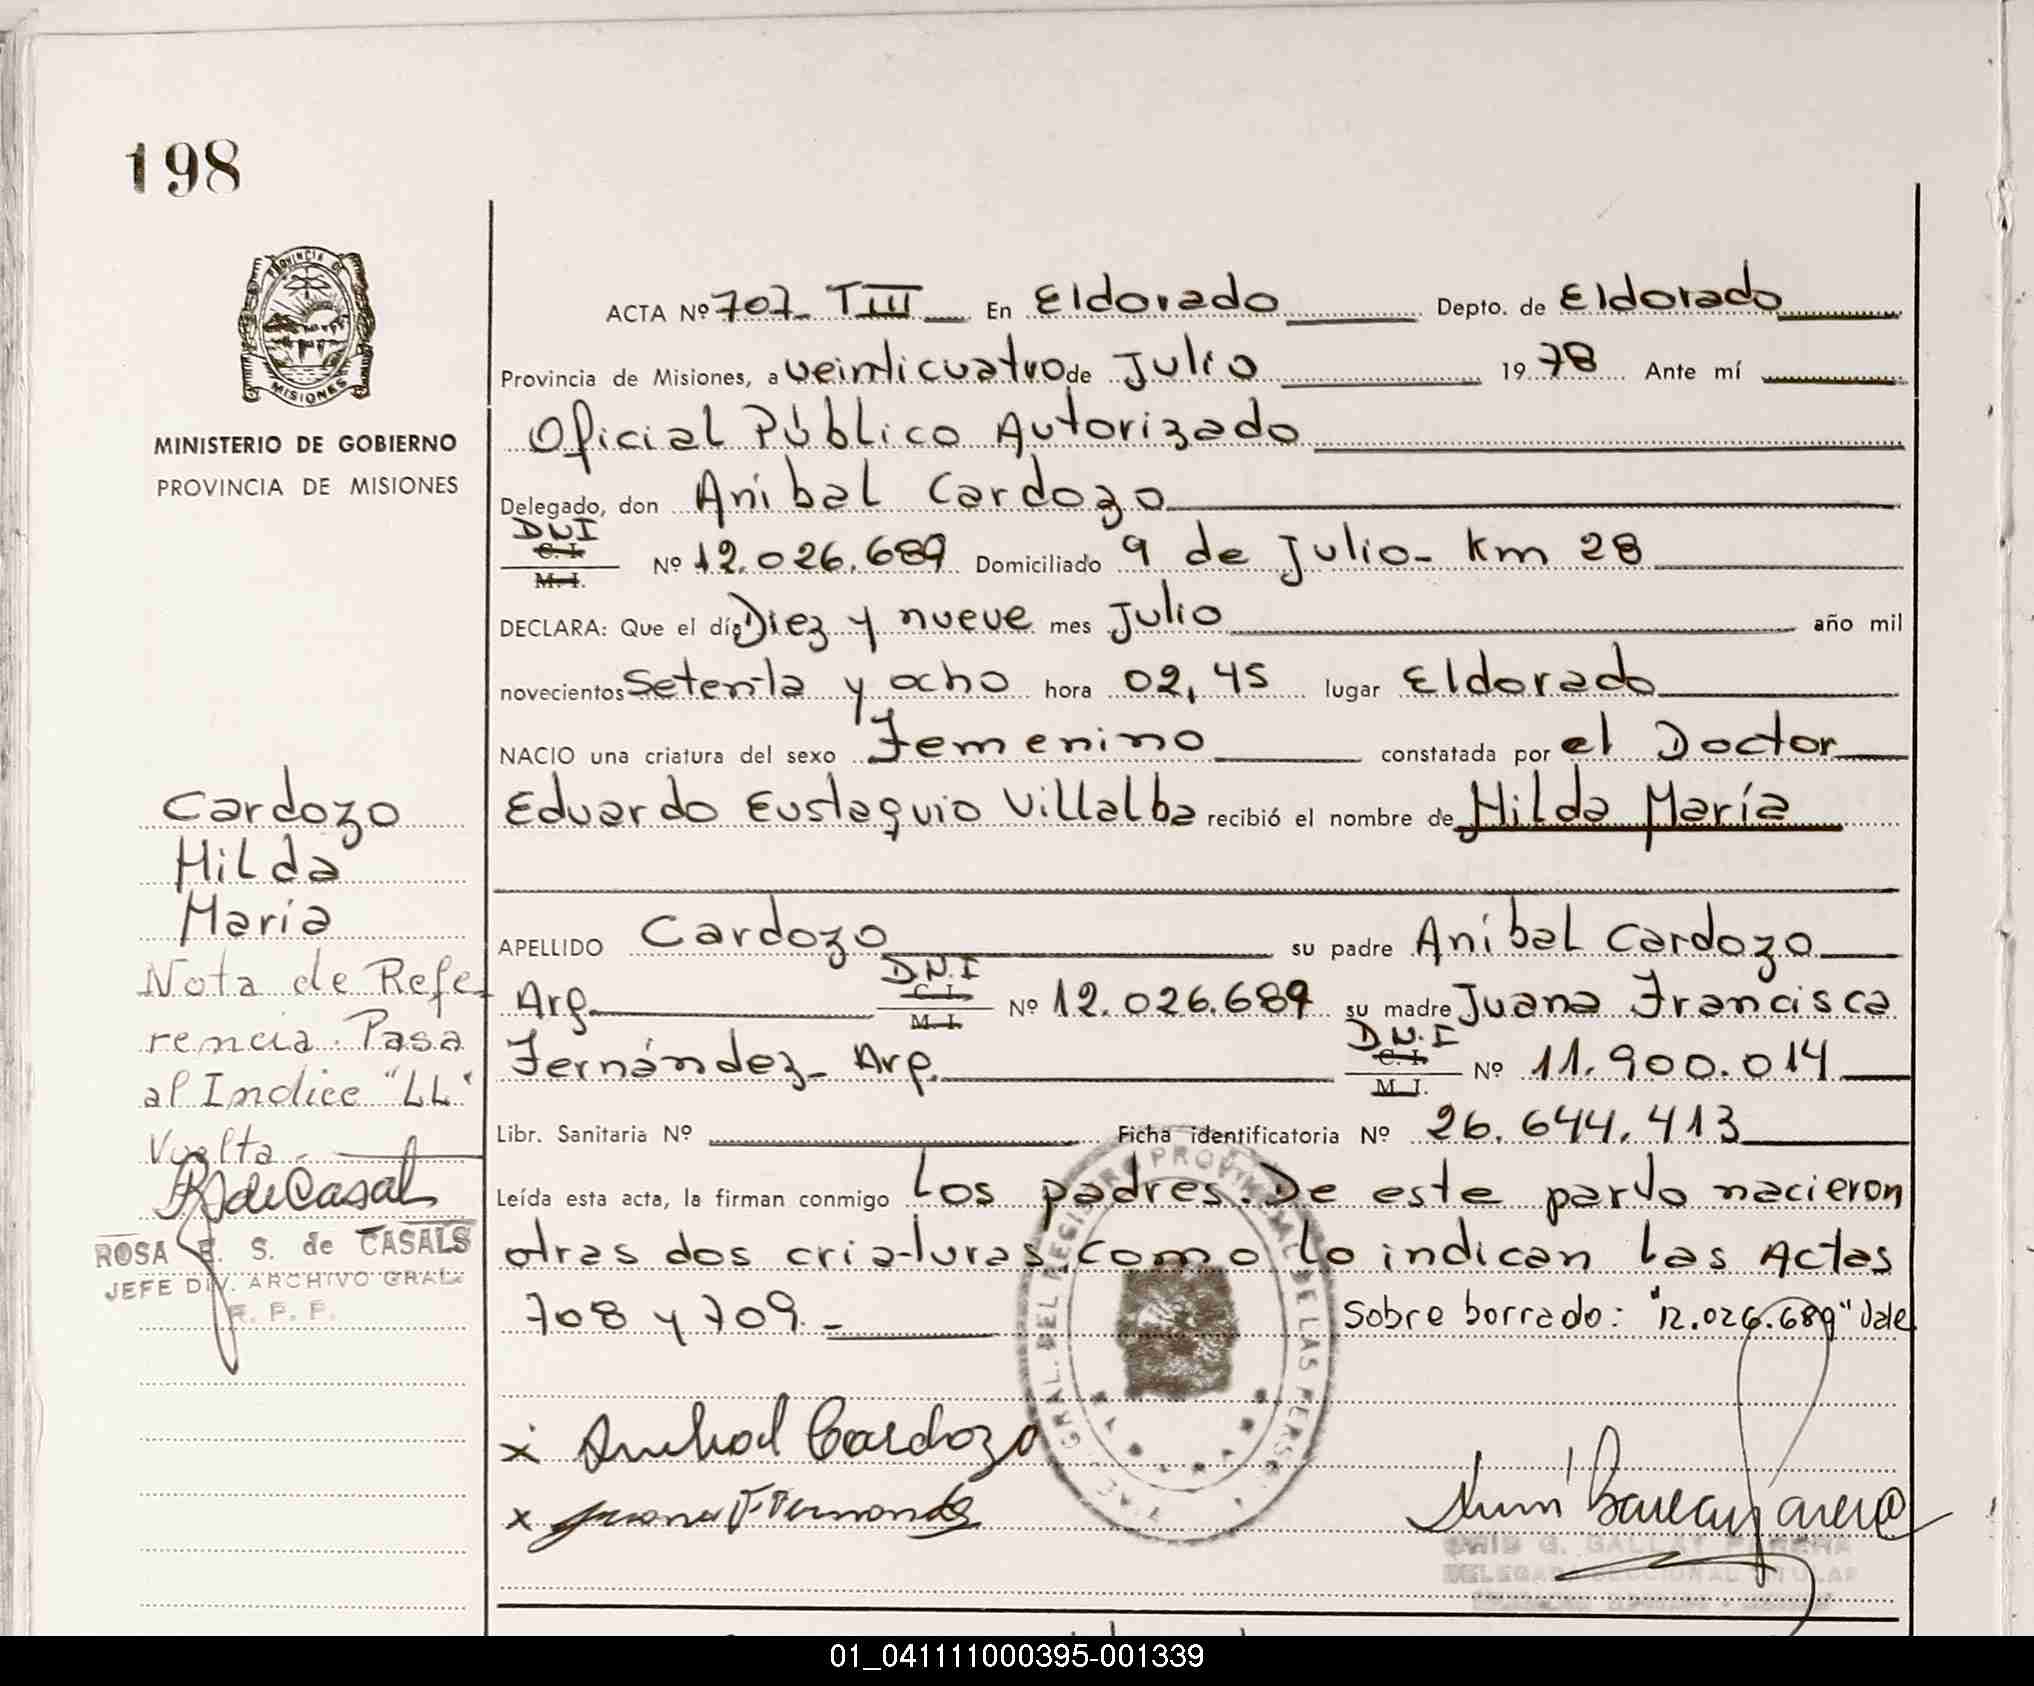 198
PROVINCIA DE
MISIONES
MINISTERIO DE GOBIERNO
PROVINCIA DE MISIONES
ACTA Nº 707 TIII En Eldorado Depto. de Eldorado
Provincia de Misiones, a veinticuatro de Julio 1978 Ante mí
Oficial Público Autorizado
Delegado, don Aníbal Cardozo
DNI
C. I.
M. I.
Nº 12.026.689 Domiciliado 9 de Julio - Km 28
DECLARA: Que el día Diez y nueve mes Julio año mil
novecientos Setenta y ocho hora 02,45 lugar Eldorado
NACIO una criatura del sexo Femenino constatada por el Doctor
Eduardo Eustaquio Villalba recibió el nombre de Hilda María
APELLIDO Cardozo su padre Aníbal Cardozo
Arg. D.N.I C. I. M. I. Nº 12.026.689 su madre Juana Francisca
Fernández - Arg. D.N.I C. I. M. I. Nº 11.900.014
Libr. Sanitaria Nº Ficha identificatoria Nº 26.644.413
Leída esta acta, la firman conmigo Los padres. De este parto nacieron
otras dos criaturas como lo indican las Actas
708 y 709. - Sobre borrado: "12.026.689" Vale
x Anibal Cardozo
x Juana F. Fernandez
Cardozo
Hilda
María
Nota de Refe
rencia. Pasa
al Indice "LL"
Vuelta.
R S de Casals
ROSA E. S. de CASALS
JEFE DIV. ARCHIVO GRAL.
R. P. P.
GRAL. DEL REGISTRO PROVINCIAL DE LAS PERSONAS
G. GALLAY PERERA
DELEGADA SECCIONAL TITULAR
01_041111000395-001339